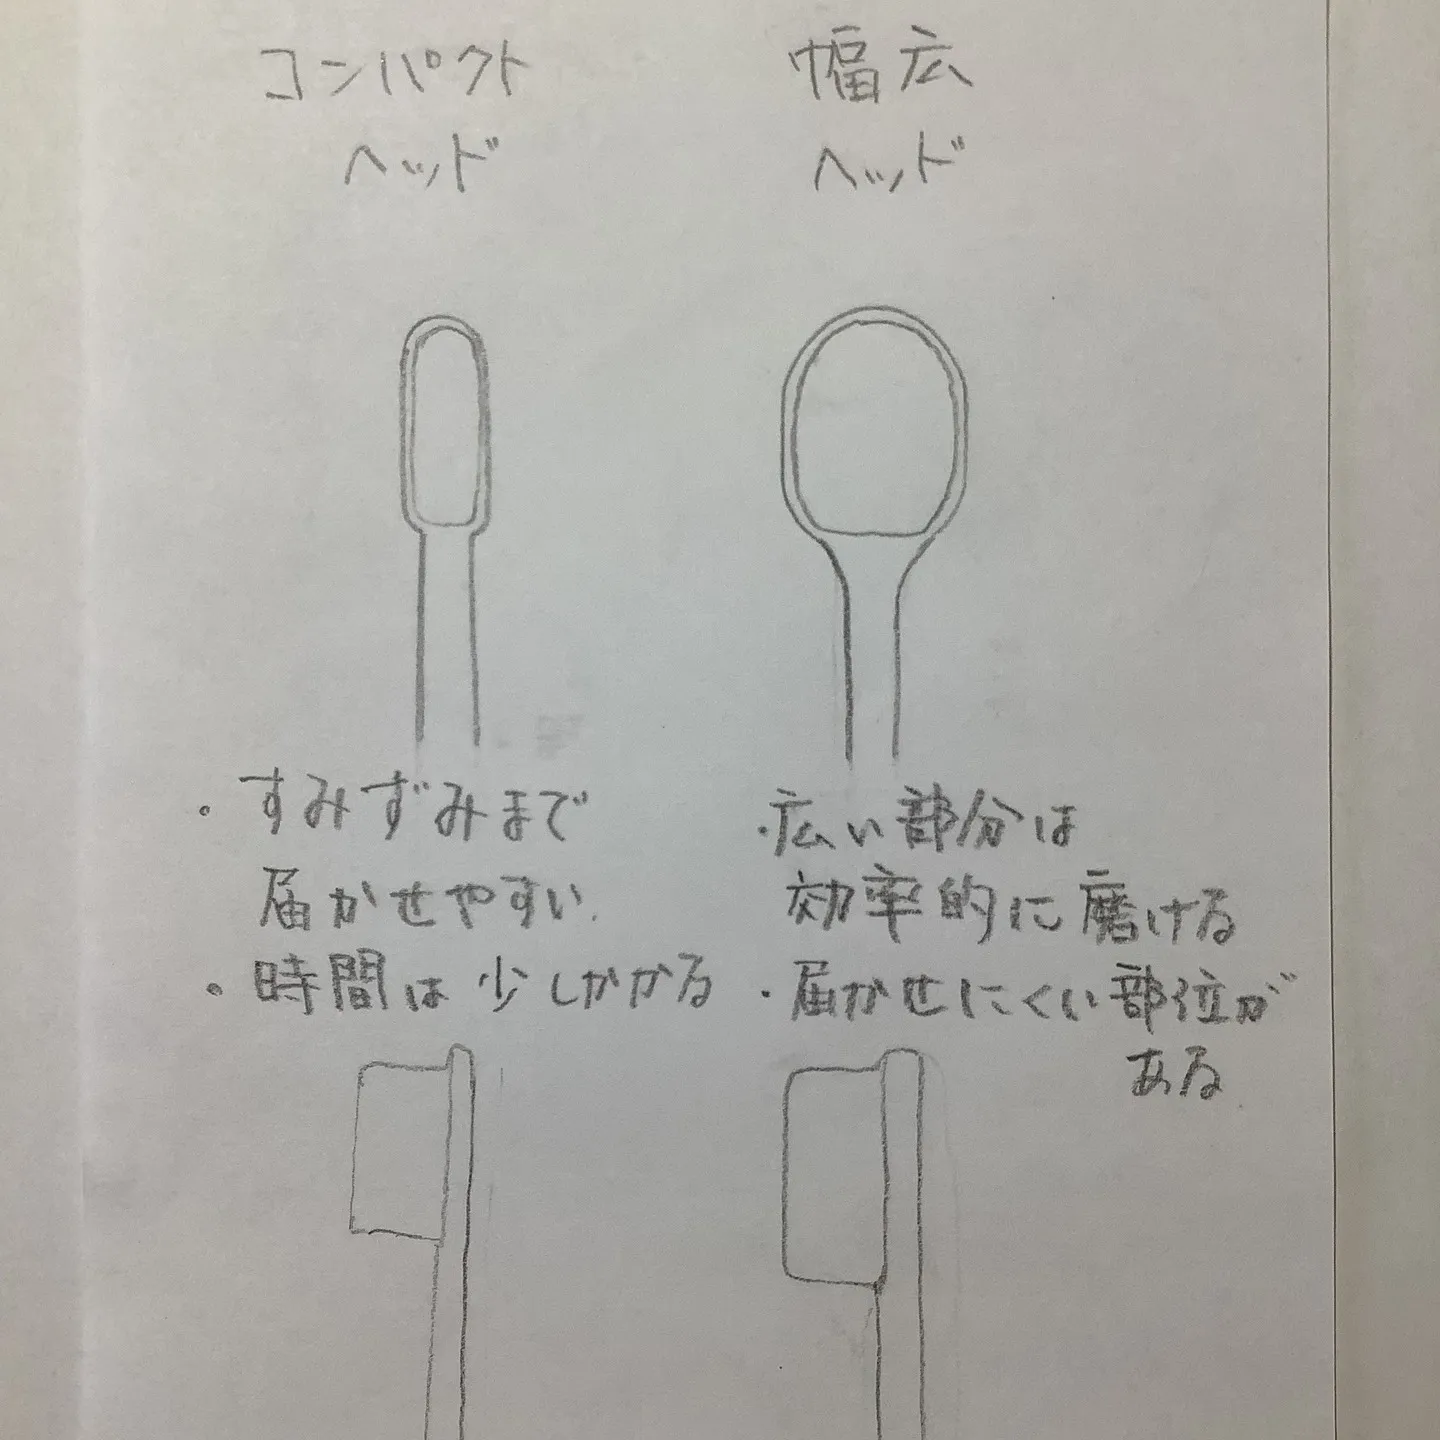 コンパクト
ヘッド
幅広
ヘッド
・すみずみまで
届かせやすい.
・時間は少しかかる
・広い部分は
効率的に磨ける
・届かせにくい部位が
ある